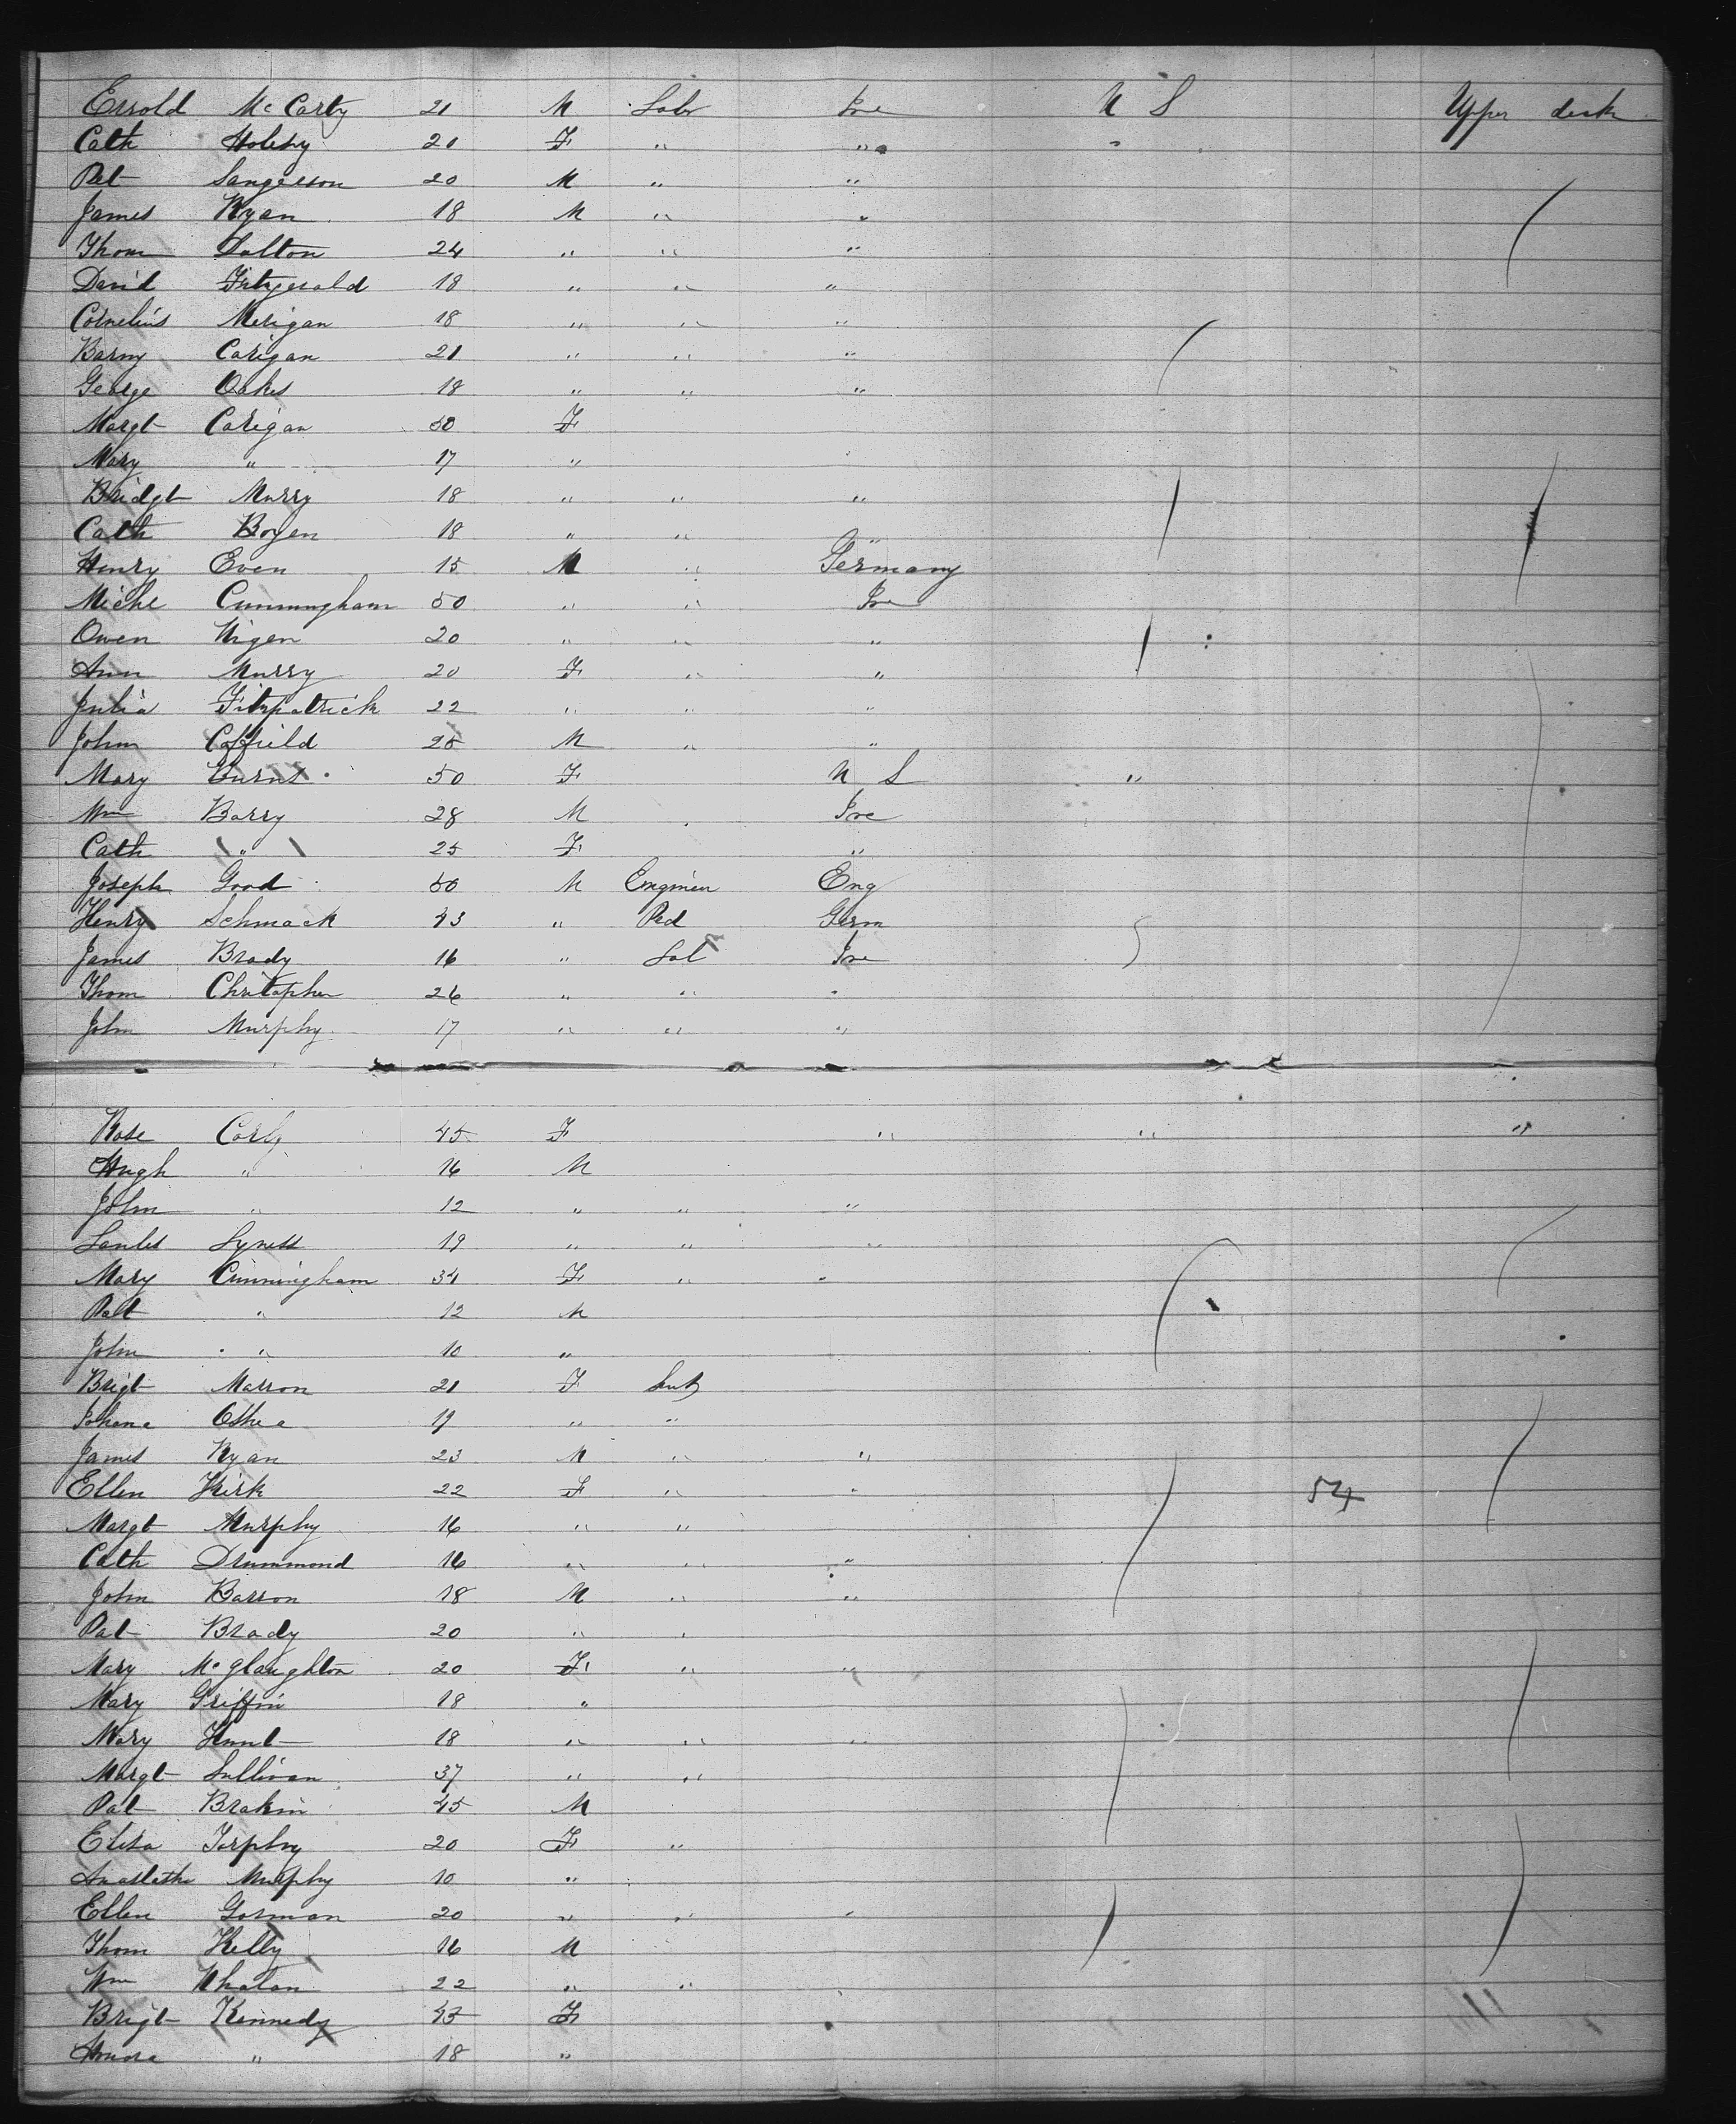 Errold McCarty 21 M Labr Ire U S Upper deck
Cath Holehy 20 F " " "
Pat Sangerson 20 M " "
James Ryan 18 M " "
Thom Dalton 24 " " "
David Fitzgerald 18 " " "
Cornelius Merigan 18 " " "
Barny Carigan 21 " " "
George Oakes 18 " " "
Margt Carigan 50 F
Mary " 17 "
Bridgt Murry 18 " " "
Cath Boyen 18 " " "
Henry Even 15 M " Germany
Miche Cunningham 50 " " Ire
Owen Nigen 20 " " "
Ann Murry 20 F " "
Julia Fitzpatrick 22 " " "
John Coffield 25 M " "
Mary Burns 50 F U S "
Wm Barry 28 M Ire
Cath " 25 F "
Joseph Good 50 M Enginen Eng
Henry Schmack 43 " Ped Germ
James Brady 16 " Lab Ire
Thom Christopher 26 " " "
John Murphy 17 " " "
Rose Corly 45 F " " "
Hugh " 16 M
John " 12 " " "
Lyness 19 " " "
Mary Cunningham 34 F " "
Patt " 12 M
John " 10 "
Brigt Marron 21 F
Johana Oshea 19 " "
James Ryan 23 M " "
Ellen Kirk 22 F " " 54
Margt Murphy 16 " "
Cath Drummond 16 " " "
John Barron 18 M " "
Pat Brady 20 " "
Mary McGlaughlon 20 F " "
Mary Griffin 18 "
Mary Hunt 18 " " "
Margt Sullivan 37 " "
Pat Brakin 45 M
Eliza Torphy 20 F "
Murphy 10 "
Ellen Gorman 20 " " "
Thom Kelly 16 M
Wm Whalan 22 " "
Brigt Kennedy 45 F
Honora " 18 "